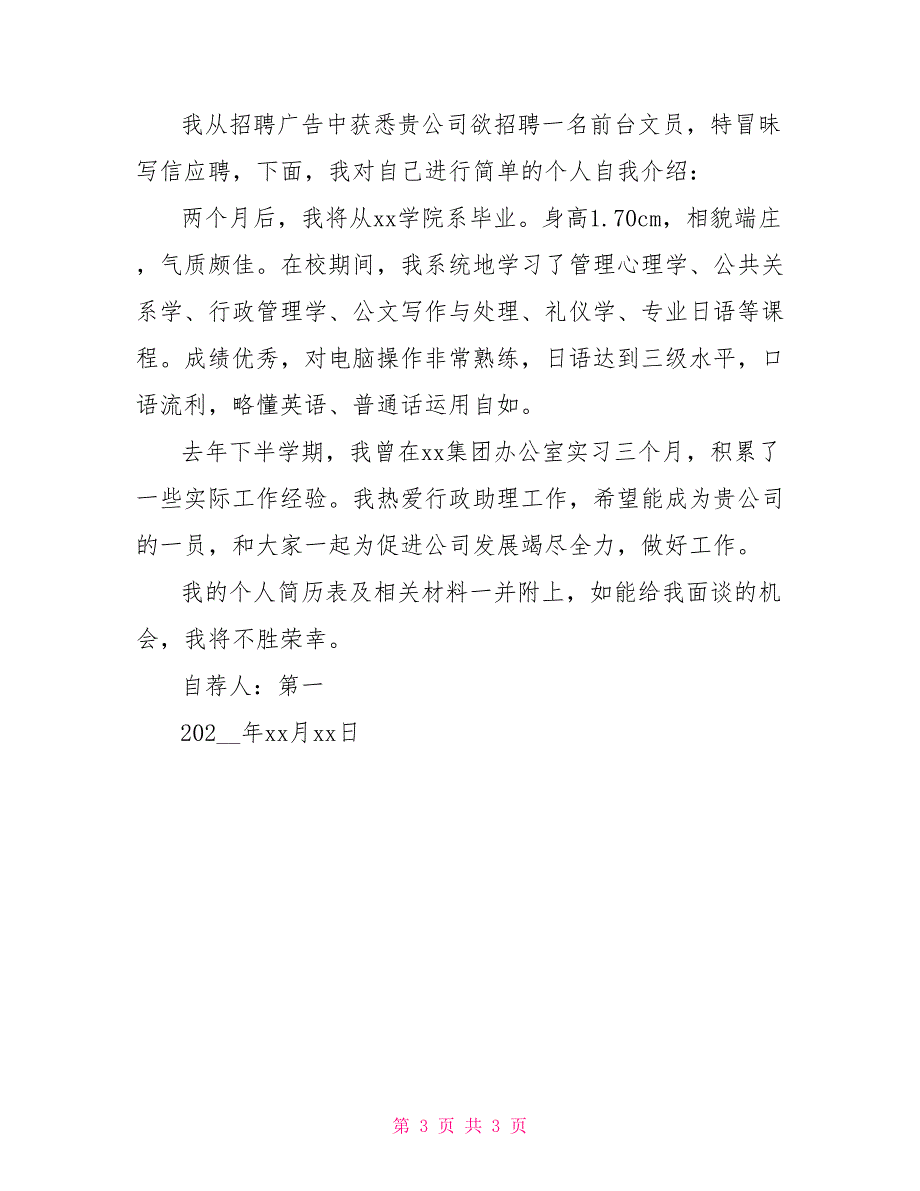 我从招聘广告中获悉贵公司欲招聘一名前台文员，特冒昧
写信应聘，下面，我对自己进行简单的个人自我介绍：
两个月后，我将从xx学院系毕业。身高1.70cm，相貌端庄
，气质颇佳。在校期间，我系统地学习了管理心理学、公共关
系学、行政管理学、公文写作与处理、礼仪学、专业日语等课
程。成绩优秀，对电脑操作非常熟练，日语达到三级水平，口
语流利，略懂英语、普通话运用自如。
去年下半学期，我曾在xx集团办公室实习三个月，积累了
一些实际工作经验。我热爱行政助理工作，希望能成为贵公司
的一员，和大家一起为促进公司发展竭尽全力，做好工作。
我的个人简历表及相关材料一并附上，如能给我面谈的机
会，我将不胜荣幸。
自荐人：第一
202__年xx月xx日
第 3 页 共 3 页